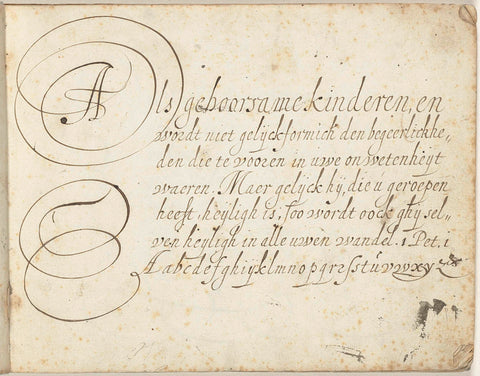 Als gehoorsame kinderen, en
wordt niet gelijckformich den begeerlickhe„
den die te vooren in uwe onwetenheijt
waeren. Maer gelijck hij, die ú geroepen
heeft, heijligh is, soo wordt oock ghij sel„
ven heijligh in alle uwen wandel. 1. Pet. 1
Aabcdefghijklmnopqrsstuvwxyz